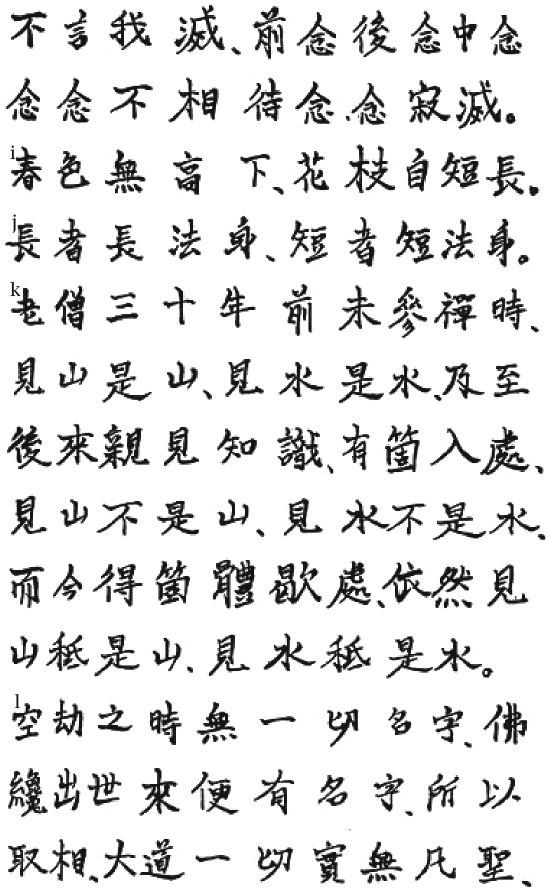 不言我滅、前念後念中念
念念不相待念念寂滅。
i春色無高下、花枝自短長。
j長者長法身、短者短法身。
k老僧三十年前未參禪時、
見山是山、見水是水、乃至
後來親見知識、有箇入處、
見山不是山、見水不是水、
而今得箇體歇處、依然見
山秖是山、見水秖是水。
l空劫之時無一切名字、佛
纔出世來便有名字、所以
取相、大道一切實無凡聖、